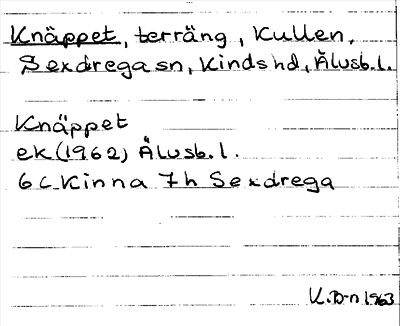 Knäppet, terräng, Kullen,
Sexdrega sn, Kinds hd, Älvsb.l.
Knäppet
ek (1962) Älvsb.l.
6c Kinna 7h Sexdrega
K.B-n 1963